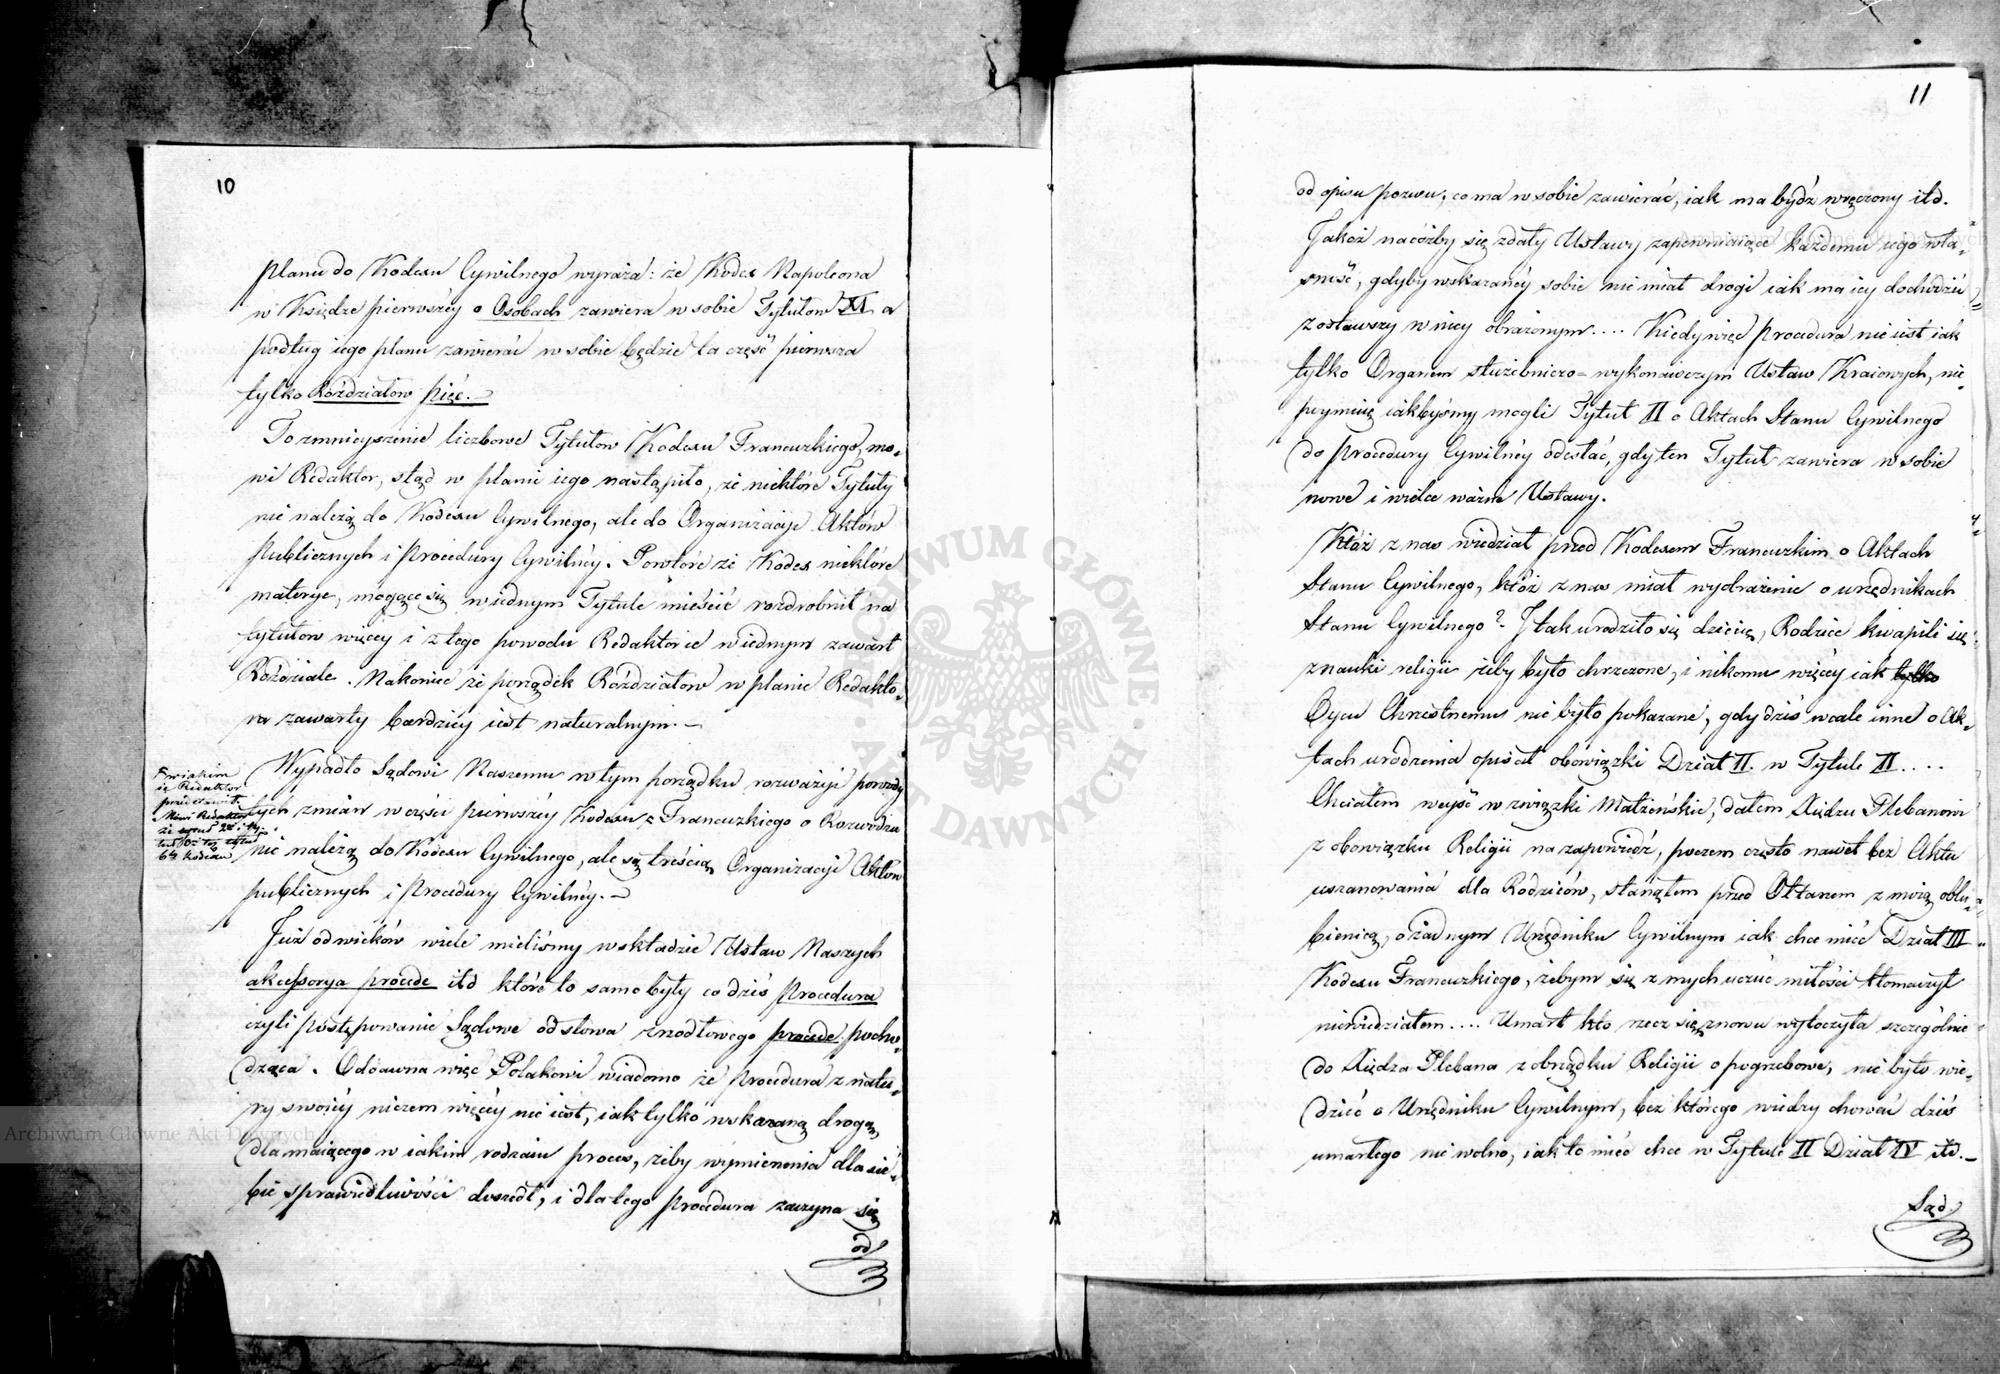 10
planu do Kodexu Cywilnego wyraża: że Kodex Napoleona
w Księdze pierwszéy o Osobach zawiera w sobie Tytułow XI a
podług iego planu zawierać w sobie będzie ta część pierwsza
tylko Rozdziałow pięć.—
To zmnieyszenie liczbowe Tytułow Kodexu Francuzkiego, mo-
wi Redaktor, stąd w planie iego nastąpiło, że niektóre Tytuły
nie należą do Kodexu Cywilnego, ale do Organizacyi Aktów
Publicznych i Procedury Cywilnéy. Powtóre że Kodex niektóre
materye, mogące się w iednym Tytule mieścić rozdrobnił na
tytułow więcey i z tego powodu Redaktor ie w iednym zawarł
Rozdziale. Nakoniec że porządek Rozdziałow w planie Redakto-
ra zawarty bardziéy iest naturalnym.—
Wypadło Sądowi Naszemu w tym porządku rozważyć powody
w iakim
ie Redaktor
przedstawił.
Mówi Redaktor
64 Kodexu
tych zmian w części pierwszéy Kodexu Francuzkiego o Rozwodzie
nie należą do Kodexu Cywilnego, ale są treścią Organizacyi Aktow
publicznych i Procedury Cywilnéy.—
Już od wieków wiele mieliśmy w składzie Ustaw Naszych
akcessorya procede itd które to samo były co dziś Procedura
czyli postępowanie Sądowe od słowa zrzodłowego procede pocho-
dząca. Oddawna więc Polakowi wiadomo że Procedura z natu-
ry swoiéy niczem więcéy nie iest, iak tylko wskazaną drogą,
dla maiącego w iakim rodzaiu proces, żeby wymierzenia dla sie-
bie sprawiedliwości doszedł, i dla tego Procedura zaczyna się
od
11
od opisu pozwu, co ma w sobie zawierać, iak ma bydź wręczony itd.
Jakoż nacóżby się zdały Ustawy zapewniaiące każdemu iego wła-
sność, gdyby wskazanéy sobie nie miał drogi iak ma iey dochodzić
zostawszy w niey obrażonym.... Kiedy więc Procedura nie iest iak
tylko Organem służebniczo-wykonawczym Ustaw Kraiowych, nie
poymuię iakbyśmy mogli Tytuł II o Aktach Stanu Cywilnego
do Procedury Cywilnéy odesłać, gdy ten Tytuł zawiera w sobie
nowe i wielce ważne Ustawy.
Któż z nas wiedział przed Kodexem Francuzkim o Aktach
Stanu Cywilnego, któż z nas miał wyobrażenie o urzędnikach
Stanu Cywilnego? I tak urodziło się dziecię, Rodzice kwapili się
z nauki religii żeby było chrzczone, i nikomu więcéy iak tylko
Oycu Chrzestnemu nie było pokazane, gdy dziś wcale inne o Ak-
tach urodzenia opisał obowiązki Dział II. w Tytule II....
Chciałem weyść w związki Małżeńskie, dałem Xiędzu Plebanowi
z obowiązku Religii na zapowiedź, poczem często nawet bez Aktu
uszanowania dla Rodziców, stanąłem przed Ołtarzem z moią oblu-
bienicą, o żadnym Urzędniku Cywilnym iak chce mieć Dział III
Kodexu Francuzkiego, żebym się z mych uczuć miłości tłomaczył
niewiedziałem.... Umarł kto rzecz się znowu wytoczyła szczególnie
do Xiędza Plebana z obrządku Religii o pogrzebowe, nie było wie-
dzieć o Urzędniku Cywilnym, bez którego wiedzy chować dziś
umarłego nie wolno, iak to mieć chce w Tytule II Dział IV itd.—
Sąd
ARCHIWUM GŁÓWNE AKT DAWNYCH
Archiwum Główne Akt Dawnych